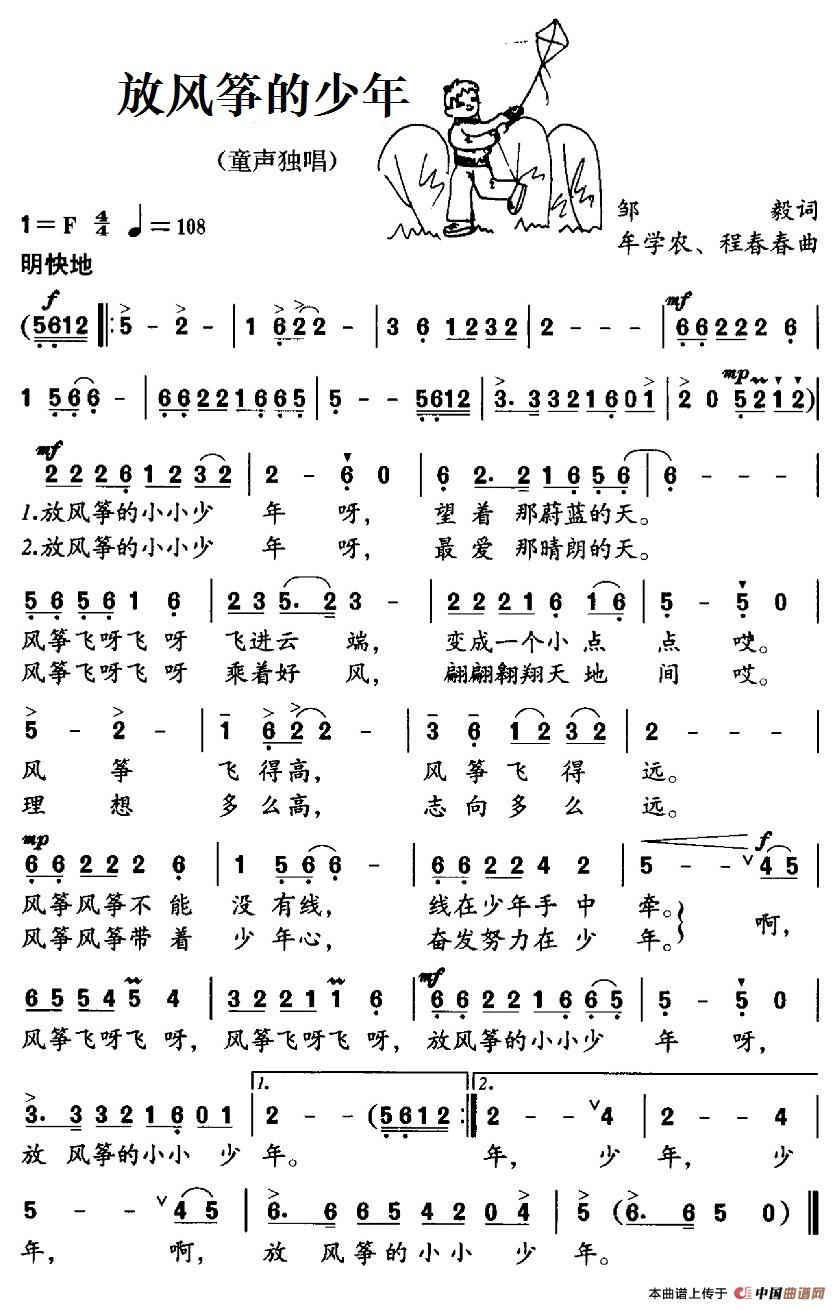 放风筝的少年
（童声独唱）
1＝F 4/4 ♩＝108
邹 毅词
牟学农、程春春曲
明快地
f
(5612 ‖: 5 - 2 - | 1 6 2 2 - | 3 6 1232 | 2 - - - | mf 66222 6 |
1 5 6 6 - | 66221665 | 5 - - 5612 | 3. 3321601 | 2 0 mp 5 2 1 2) |
mf
22261232 | 2 - 6 0 | 6 2. 21656 | 6 - - - |
1.放风筝的小小少 年 呀， 望 着 那蔚蓝的天。
2.放风筝的小小少 年 呀， 最 爱 那晴朗的天。
5 6 5 6 1 6 | 2 3 5. 2 3 - | 2 2 2 1 6 1 6 | 5 - 5 0 |
风筝飞呀飞 呀 飞进云 端， 变成一个小 点 点 哎。
风筝飞呀飞 呀 乘着好 风， 翩翩翱翔天 地 间 哎。
5 - 2 - | 1 6 2 2 - | 3 6 1 2 3 2 | 2 - - - |
风 筝 飞 得 高， 风 筝 飞 得 远。
理 想 多 么 高， 志 向 多 么 远。
mp f
6 6 2 2 2 6 | 1 5 6 6 - | 6 6 2 2 4 2 | 5 - - ∨ 4 5 |
风筝风筝不 能 没 有 线， 线在少年手 中 牵。 啊，
风筝风筝带 着 少 年 心， 奋发努力在 少 年。
mf
6 5 5 4 5 4 | 3 2 2 1 1 6 | 6 6 2 2 1 6 6 5 | 5 - 5 0 |
风筝飞呀飞 呀， 风筝飞呀飞 呀， 放风筝的小小少 年 呀，
1. 2.
3. 3 3 2 1 6 0 1 | 2 - - (5612 :‖ 2 - - ∨ 4 | 2 - - 4 |
放 风筝的小小 少 年。 年， 少 年， 少
5 - - ∨ 4 5 | 6. 6 6 5 4 2 0 4 | 5 (6. 6 5 0) ‖
年， 啊， 放 风筝的小小 少 年。
本曲谱上传于 中国曲谱网